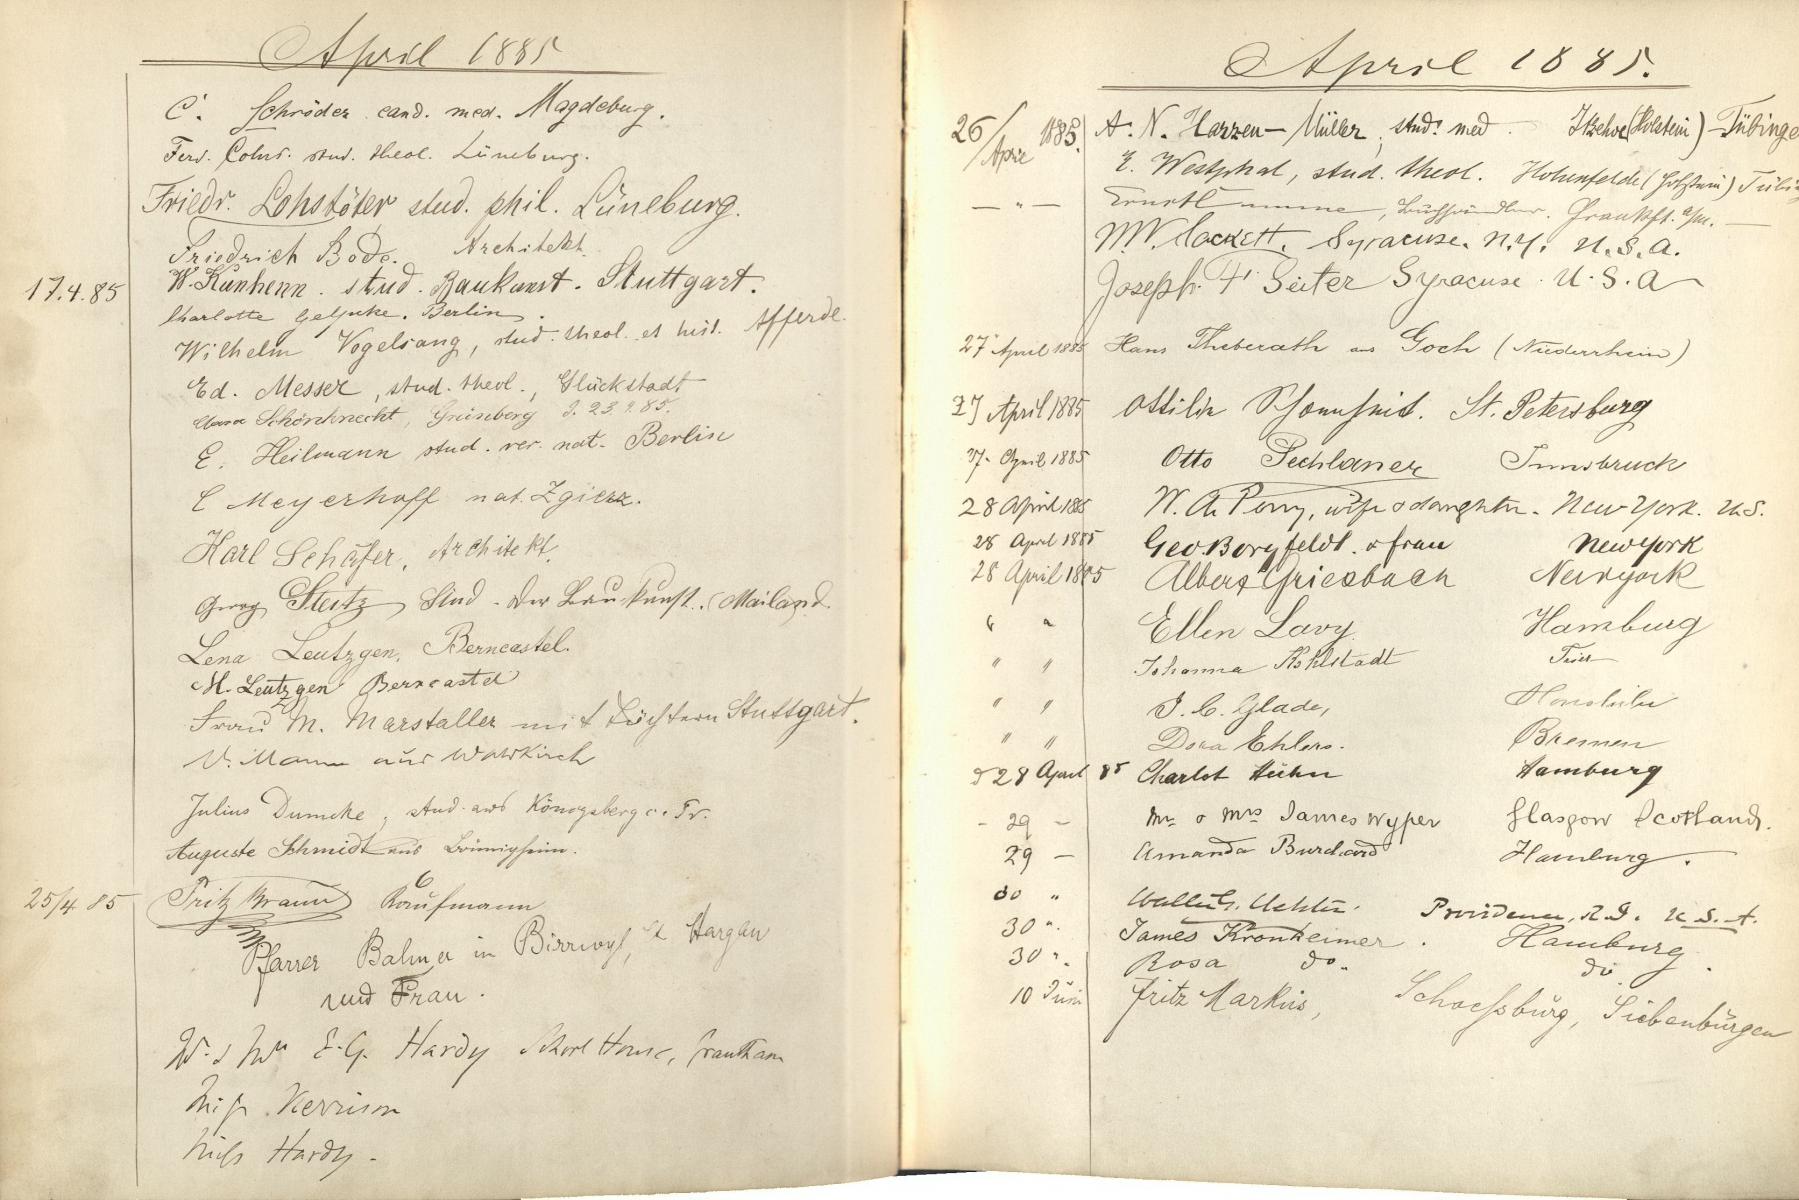 April 1885
C. Schröder cand. med. Magdeburg.
Ferd. Cohrs. stud. theol. Lüneburg.
Friedr. Lohstöter stud. phil. Lüneburg.
Friedrich Bode. Architekt.
17.4.85 W. Kunhenn. stud. Baukunst. Stuttgart.
Charlotte Berlin.
Wilhelm Vogelsang, stud. theol. et hist. Afferde.
Ed. Messer, stud. theol., Glückstadt
Grüneberg
E. Heilmann stud. rer. nat. Berlin
E Meyerhoff nat. Zgierz.
Karl Schäfer, Architekt.
Georg Steitz, Stud. der Baukunst. (Mailand.
Lena Leutzgen, Berncastel.
M. Leutzgen Berncastel
Frau M. Marstaller mit Töchtern Stuttgart.
V. Mann aus Waldkirch
Julius Dumcke, stud. aus Königsberg i. Pr.
Auguste Schmidt aus Bönnigheim.
25/4 85 Fritz Braun Kaufmann
Pfarrer Balmer in Birrwyl, Ct Aargau
und Frau.
E. G. Hardy House, Grantham
Miss Kerrison
Miss Hardy.
April 1885.
26/April 1885. A. N. Harzen-Müller, stud. med. Itzehoe (Holstein) - Tübinge
E. Westphal, stud. theol. Hohenfelde (Holstein) Tübin
— " — Ernst Buchhändler. Frankft. a/m. —
W. Hackett. Syracuse. N.Y. U.S.A.
Joseph F. Seiter Syracuse. U.S.A
27 April 1885 Hans Theberath aus Goch (Niederrhein)
27 April 1885 Ottilie St. Petersburg
27. April 1885 Otto Pechlaner Innsbruck
28 April 1885 W. A. Perry, wife & daughter. New York. U.S.
28 April 1885 Geo Borgfeldt & frau New York
28 April 1885 Albert Griesbach New york
" " Ellen Lavy. Hamburg
" " Johanna Kohlstadt Trier
" " J. C. Glade, Honolulu
" " Dora Ehlers. Bremen
28 April 85 Charlot Hühn Hamburg
- 29 - Mr. & Mrs James Wyper Glasgow Scotland.
29 - Amanda Burchard Hamburg.
30 " Providence, R.I. U.S.A.
30 ". James Kronheimer. Hamburg.
30 ". Rosa do. do.
10 Juni Fritz Markus, Schaessburg, Siebenbürgen